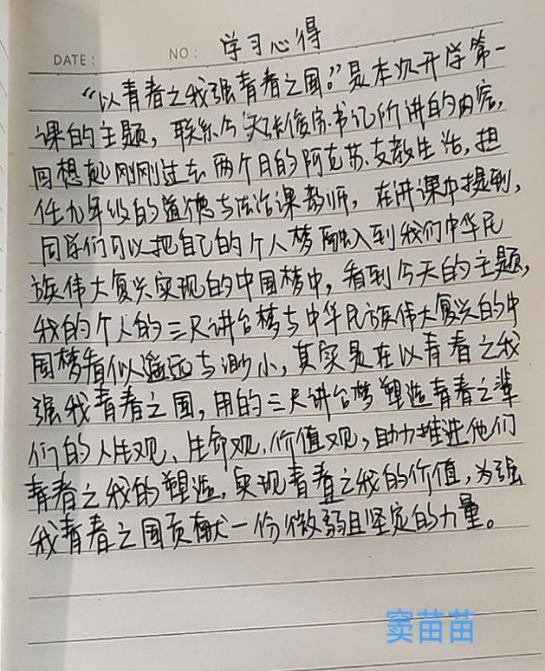 学习心得
DATE: NO:
“以青春之我强青春之国。”是本次开学第一
课的主题，联系今天张俊宗书记所讲的内容，
回想起刚刚过去两个月的阿克苏支教生活，担
任九年级的道德与法治课教师，在讲课中提到，
同学们可以把自己的个人梦融入到我们中华民
族伟大复兴实现的中国梦中，看到今天的主题，
我的个人的三尺讲台梦与中华民族伟大复兴的中
国梦看似遥远与渺小，其实是在以青春之我
强我青春之国，用的三尺讲台梦塑造青春之辈
们的人生观、生命观、价值观，助力推进他们
青春之我的塑造，实现青春之我的价值，为强
我青春之国贡献一份微弱且坚定的力量。
窦苗苗